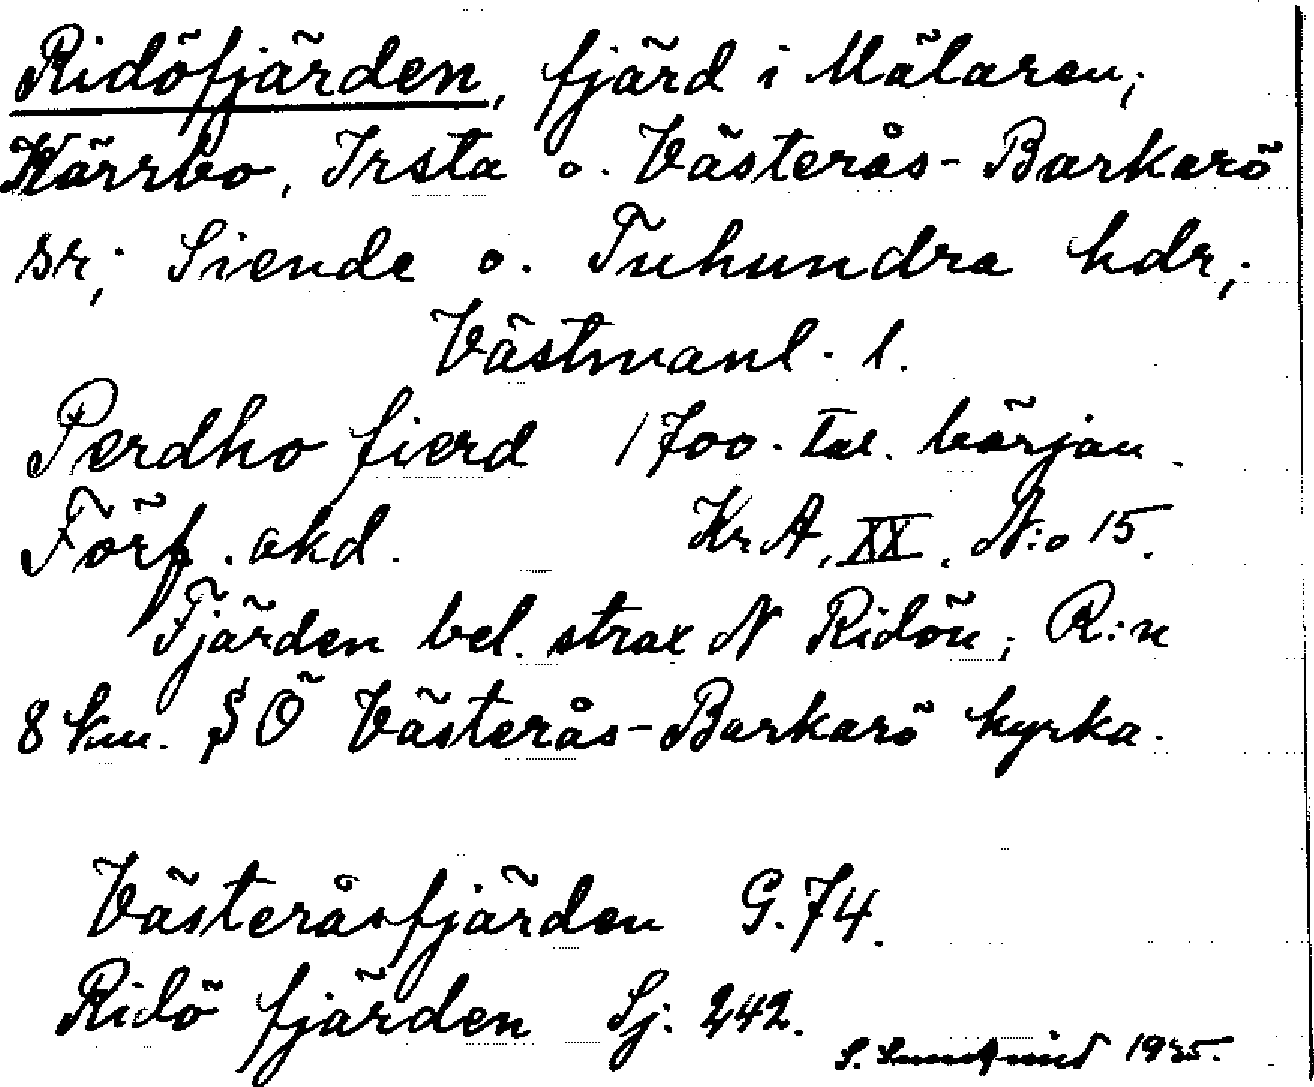 Ridöfjärden, fjärd i Mälaren;
Kärrbo, Irsta o. Västerås-Barkarö
sr; Siende o. Tuhundra hdr;
Västmanl. l.
Perdho fierd 1700-tal. början.
Förf. okd. KrA, XX, N:o 15.
Fjärden bel. strax N Ridön; R:n
8 km. SÖ Västerås-Barkarö kyrka.
Västeråsfjärden G. 74.
Ridö fjärden Sj. 242.
S. 1935.